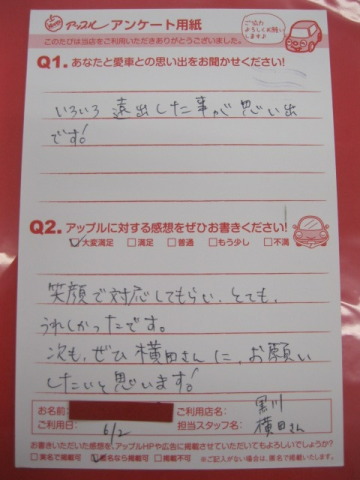 アップル アンケート用紙
ご協力
よろしくお願い
します♪
このたびは当店をご利用いただきありがとうございました。
Q1. あなたと愛車との思い出をお聞かせください!
いろいろ遠出した事が思い出
です!
Q2. アップルに対する感想をぜひお書きください!
☑大変満足 □満足 □普通 □もう少し □不満
笑顔で対応してもらい、とても、
うれしかったです。
次も、ぜひ横田さんに、お願い
したいと思います!
お名前 ご利用店名: 黒川
ご利用日: 6/2 担当スタッフ名: 横田さん
お書きいただいた感想を、アップルHPや広告に掲載させていただいてもよろしいでしょうか?
□実名で掲載可 ☑匿名なら掲載可 □掲載不可 ※ご記入がない場合は、匿名で掲載いたします。